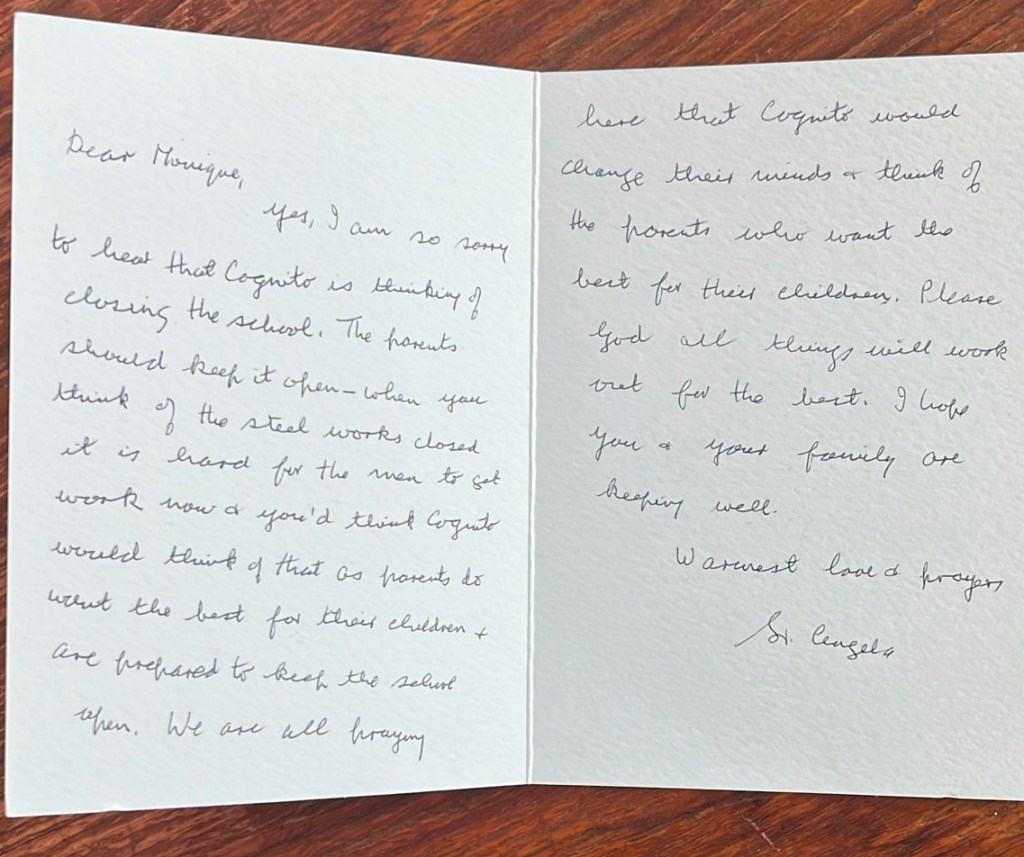 Dear Monique,
Yes, I am so sorry
to hear that Cognito is thinking of
closing the school. The parents
should keep it open – when you
think of the steel works closed
it is hard for the men to get
work now & you'd think Cognito
would think of that as parents do
want the best for their children &
are prepared to keep the school
open. We are all praying
here that Cognito would
change their minds & think of
the parents who want the
best for their children. Please
God all things will work
out for the best. I hope
you & your family are
keeping well.
Warmest love & prayers
Sr. Angela